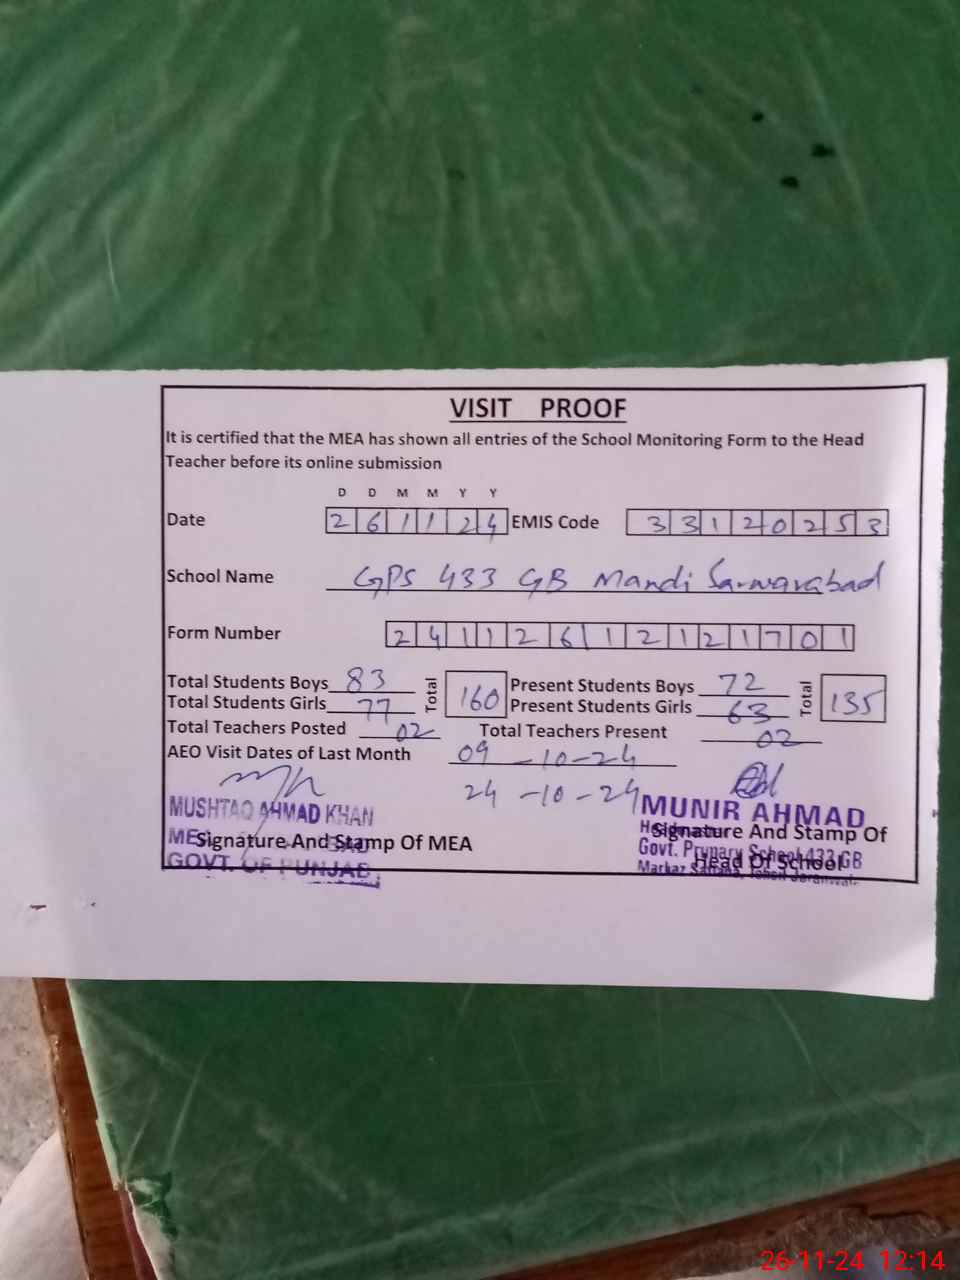 VISIT PROOF
It is certified that the MEA has shown all entries of the School Monitoring Form to the Head
Teacher before its online submission
D D M M Y Y
Date 2 6 1 1 2 4 EMIS Code 3 3 1 2 0 2 5 3
School Name GPS 433 GB Mandi Sarwarabad
Form Number 2 4 1 1 2 6 1 2 1 2 1 7 0 1
Total Students Boys 83 Total 160 Present Students Boys 72 Total 135
Total Students Girls 77 Present Students Girls 63
Total Teachers Posted 02 Total Teachers Present 02
AEO Visit Dates of Last Month 09-10-24
24-10-24
MUSHTAQ AHMAD KHAN MUNIR AHMAD
Signature And Stamp Of MEA Signature And Stamp Of
GOVT. OF PUNJAB Govt. Prymary School 433 GB
Head Of School
Markaz
26-11-24 12:14